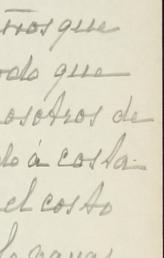 tros que
odo que
osotros de
do á costa
el costo